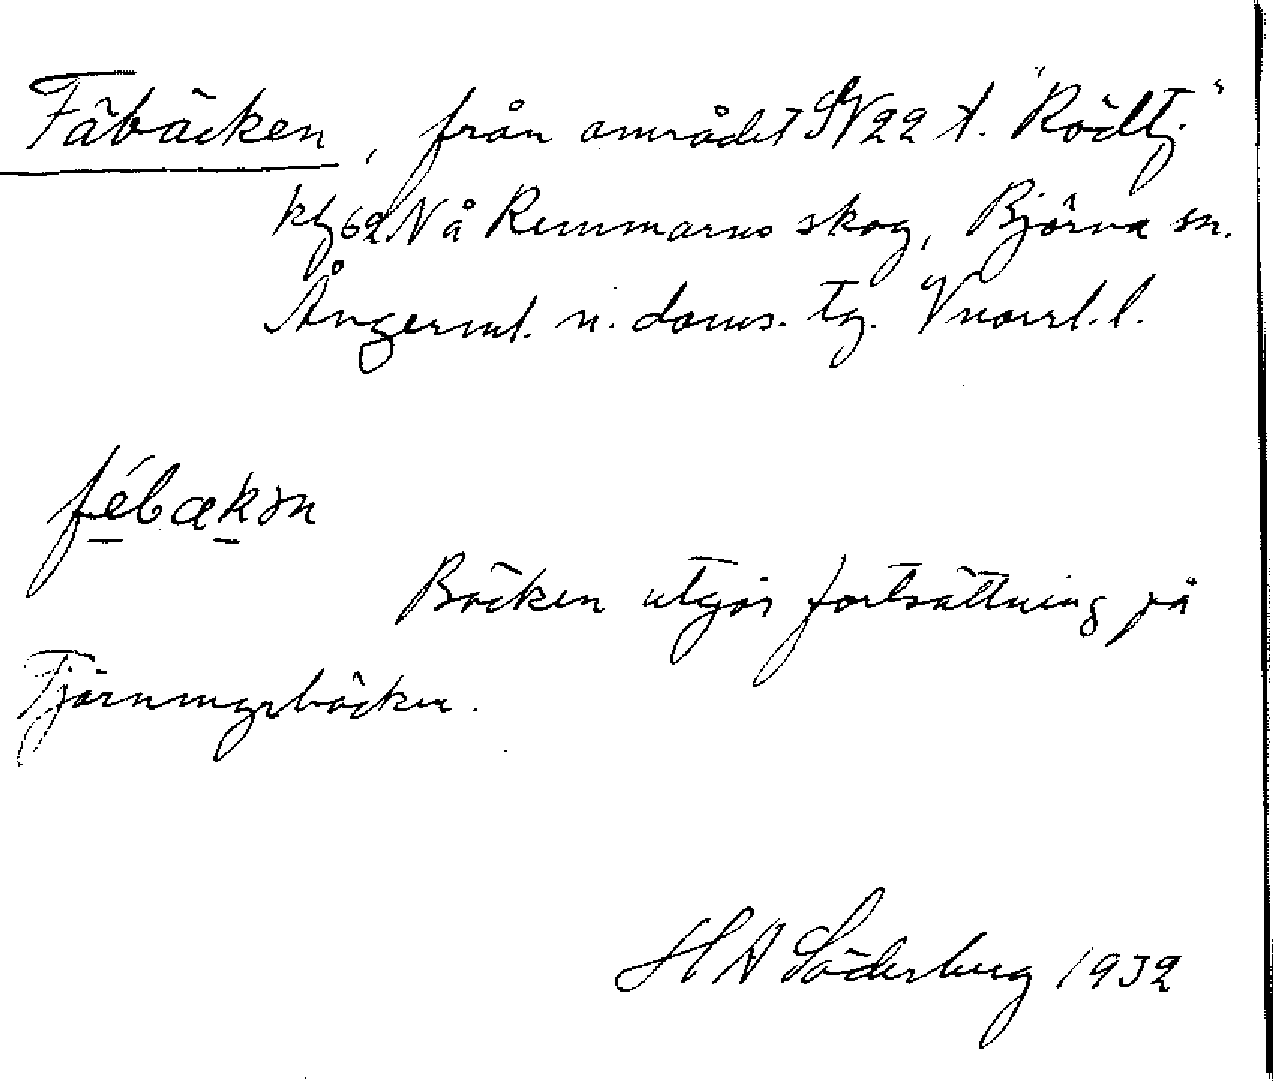 Fäbäcken, från området SV22 t. "Rödtj."
kbl 62 N å Remmarns skog, Björna sn.
Ångerml. n. doms. tg. Vnorrl. l.
fébækən
Bäcken utgör fortsättning på
Tjärnmyrbäcken.
H A Söderberg 1932